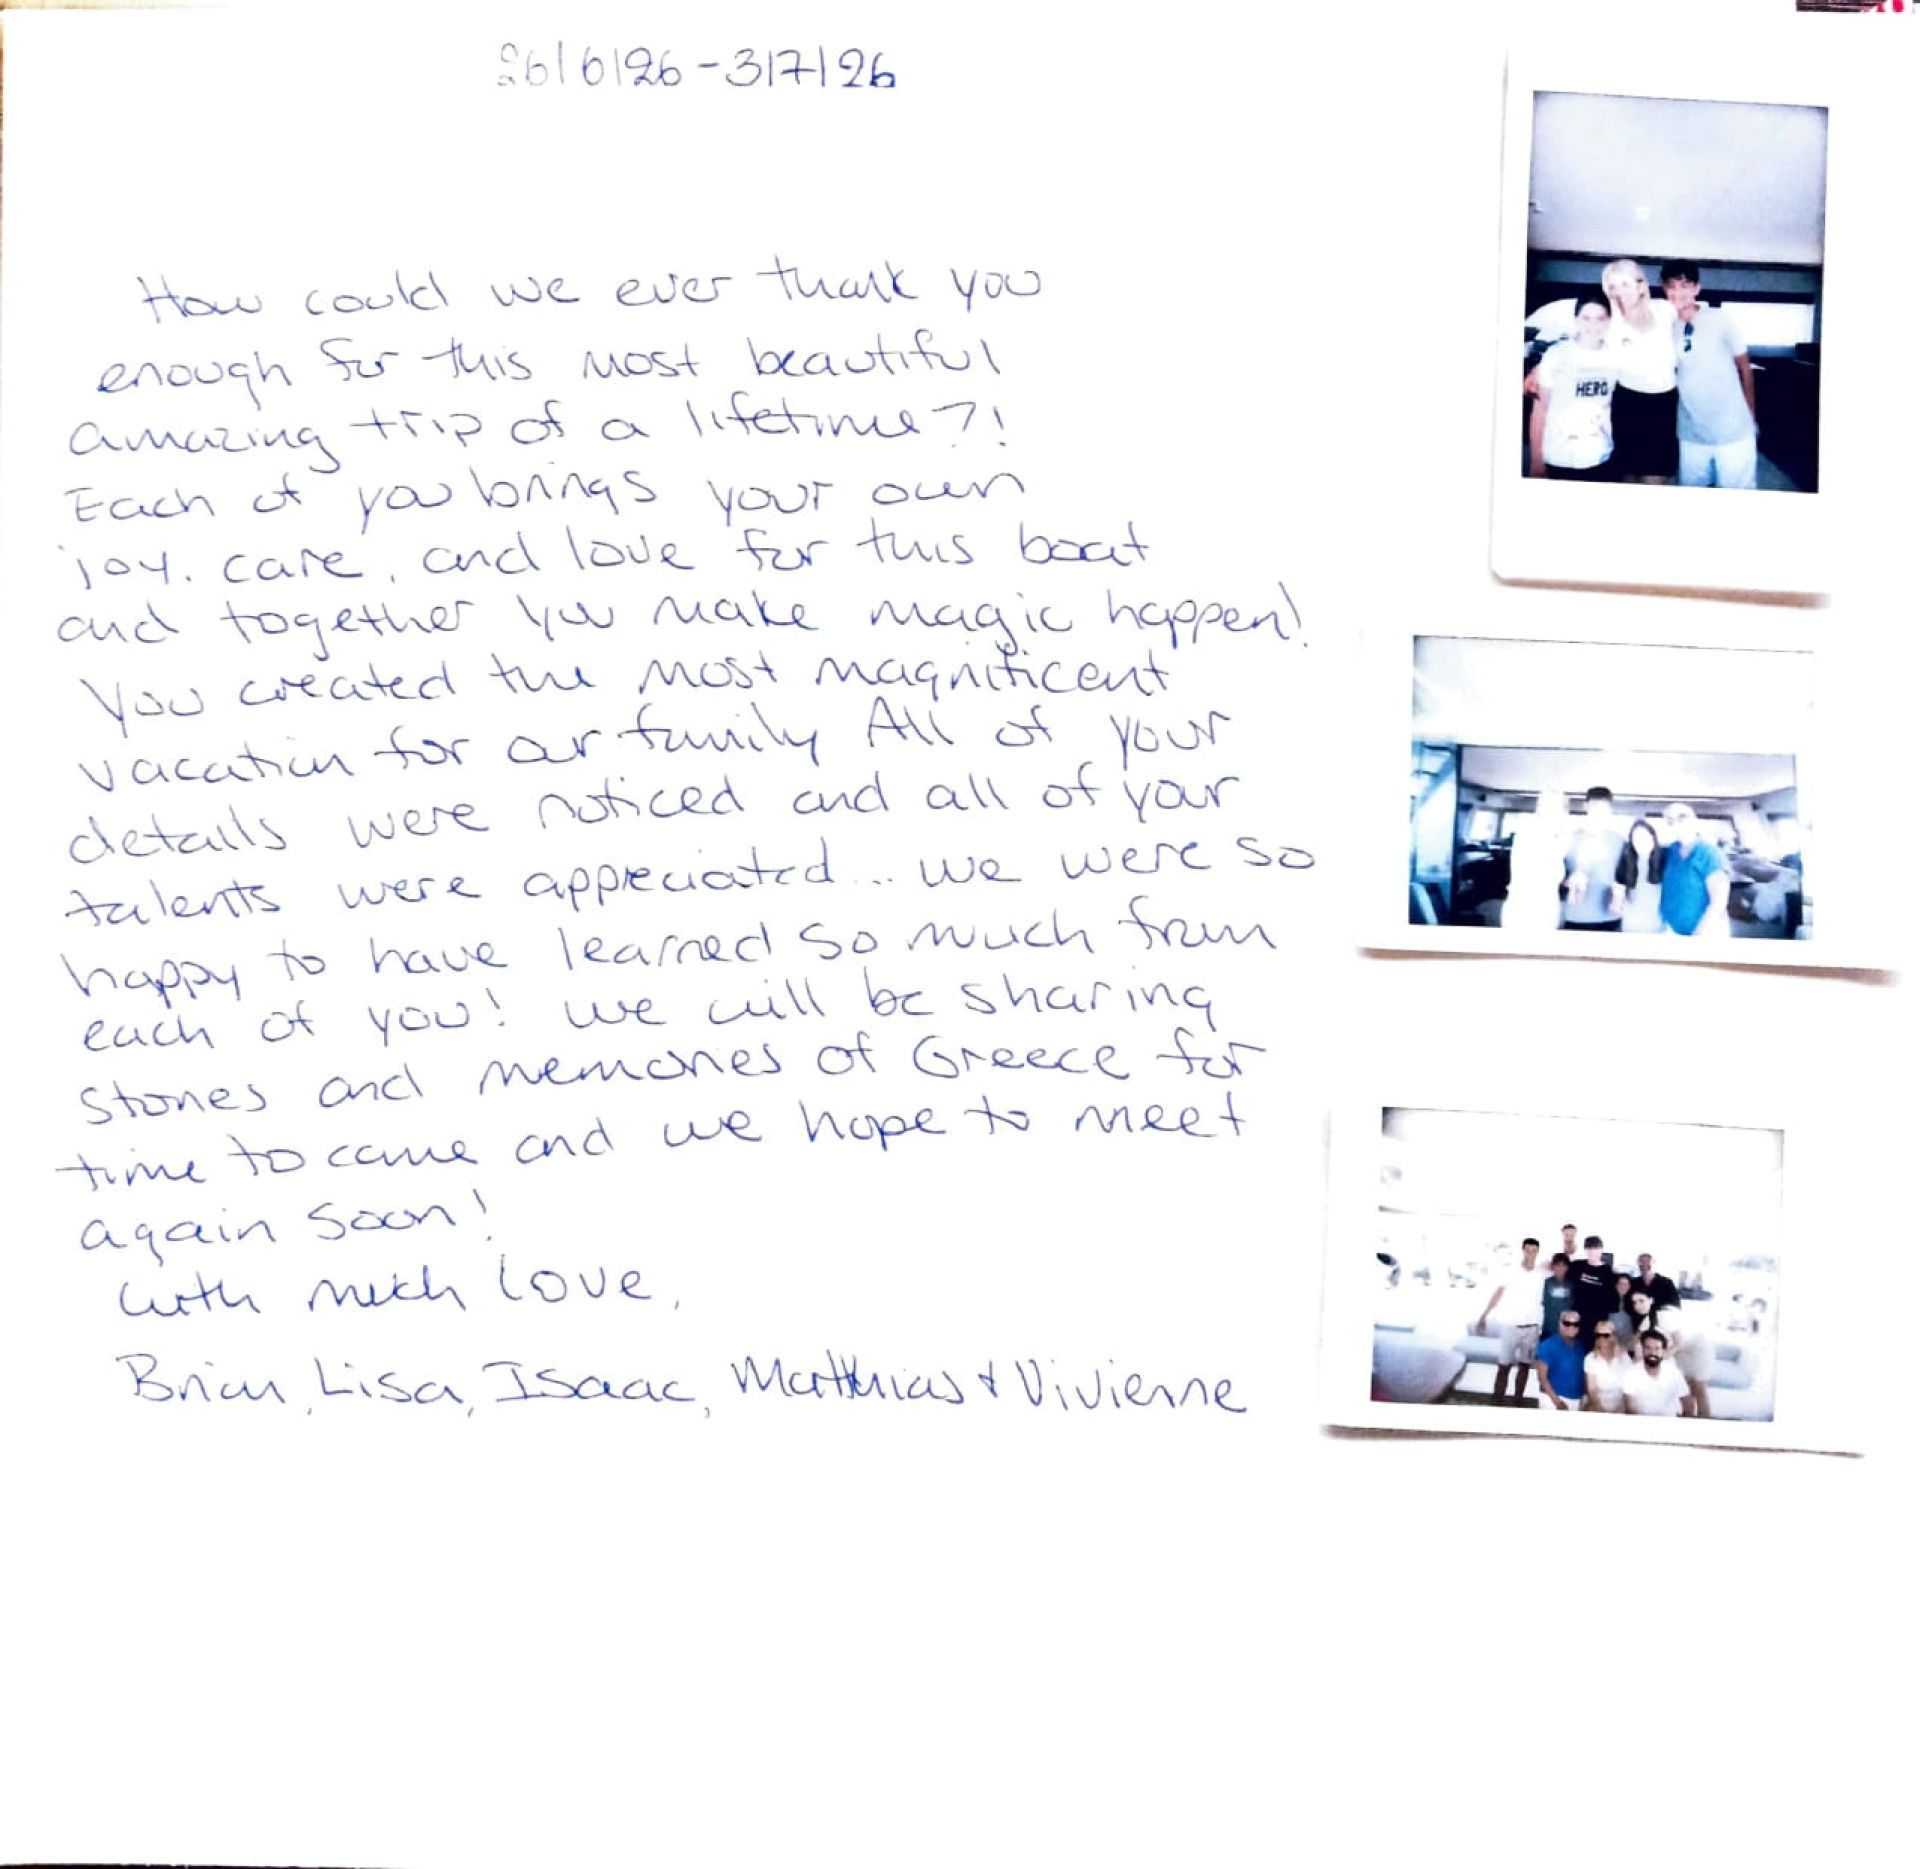 26/6/26 - 3/7/26
How could we ever thank you
enough for this most beautiful
amazing trip of a lifetime?!
Each of you brings your own
joy, care, and love for this boat
and together you make magic happen!
You created the most magnificent
vacation for our family All of your
details were noticed and all of your
talents were appreciated... we were so
happy to have learned so much from
each of you! We will be sharing
stories and memories of Greece for
time to come and we hope to meet
again soon!
With much love,
Brian, Lisa, Isaac, Matthias + Vivienne
HERO